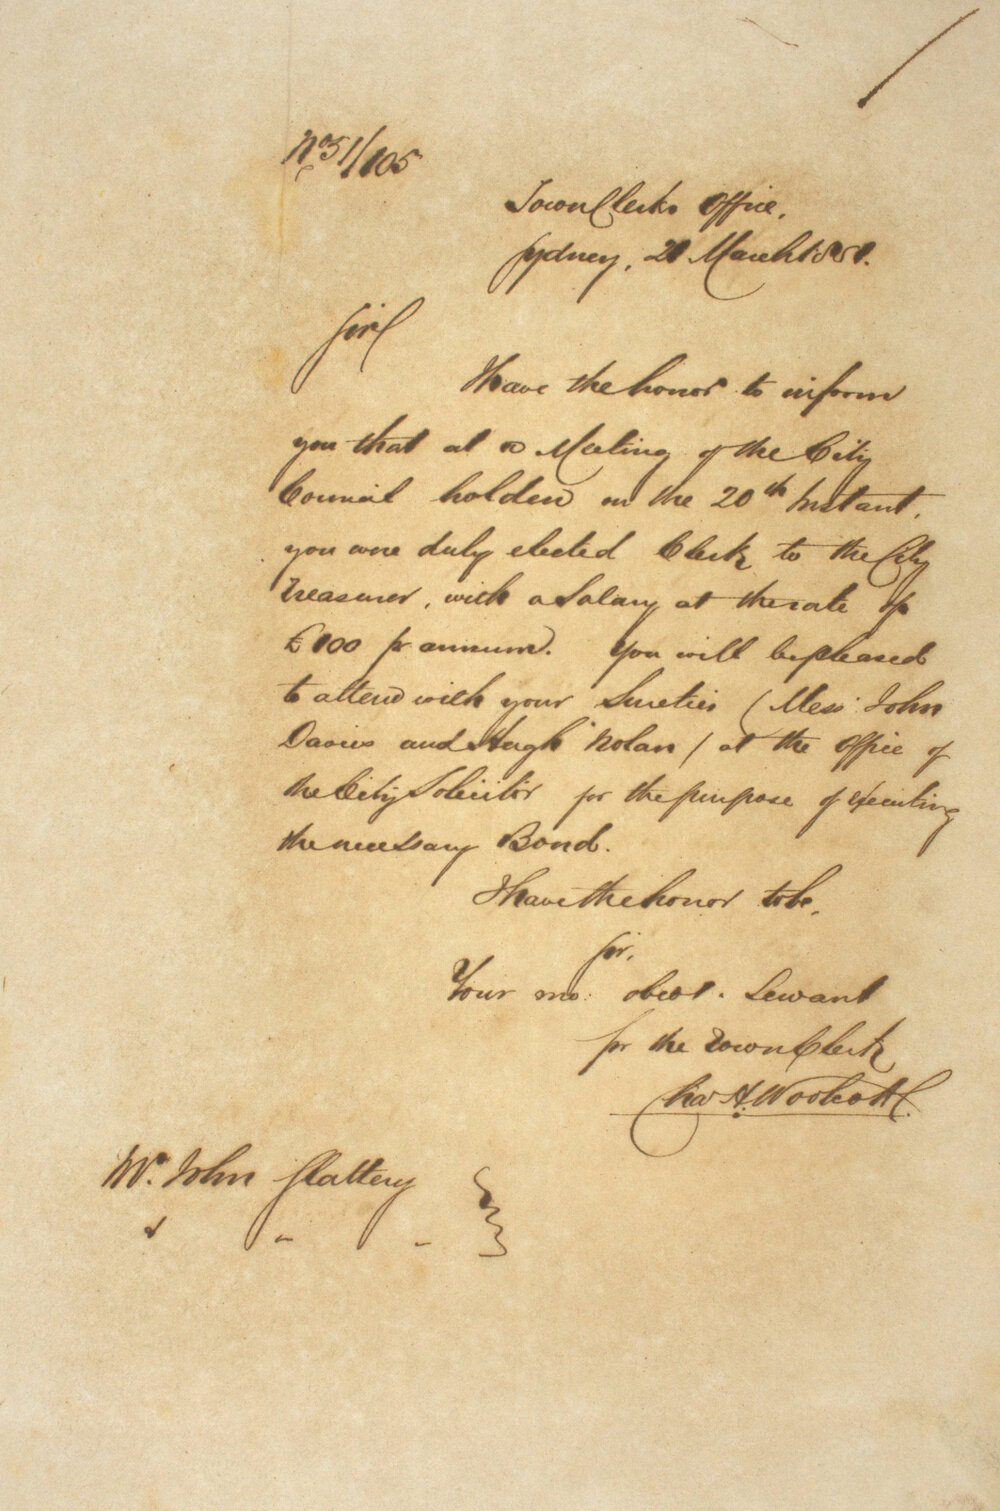 No 51/105
Town Clerks Office,
Sydney, 21 March 1851.
Sir
I have the honor to inform
you that at a Meeting of the City
Council holden on the 20th Instant,
you were duly elected Clerk to the City
Treasurer, with a Salary at the rate of
£100 pr annum. You will be pleased
to attend with your Sureties (Mess: John
Davies and Hugh Nolan) at the Office of
the City Solicitor for the purpose of executing
the necessary Bond.
I have the honor to be,
Sir,
Your mo: obedt. Servant
for the Town Clerk
Chas H. Woolcott
Mr. John Slattery